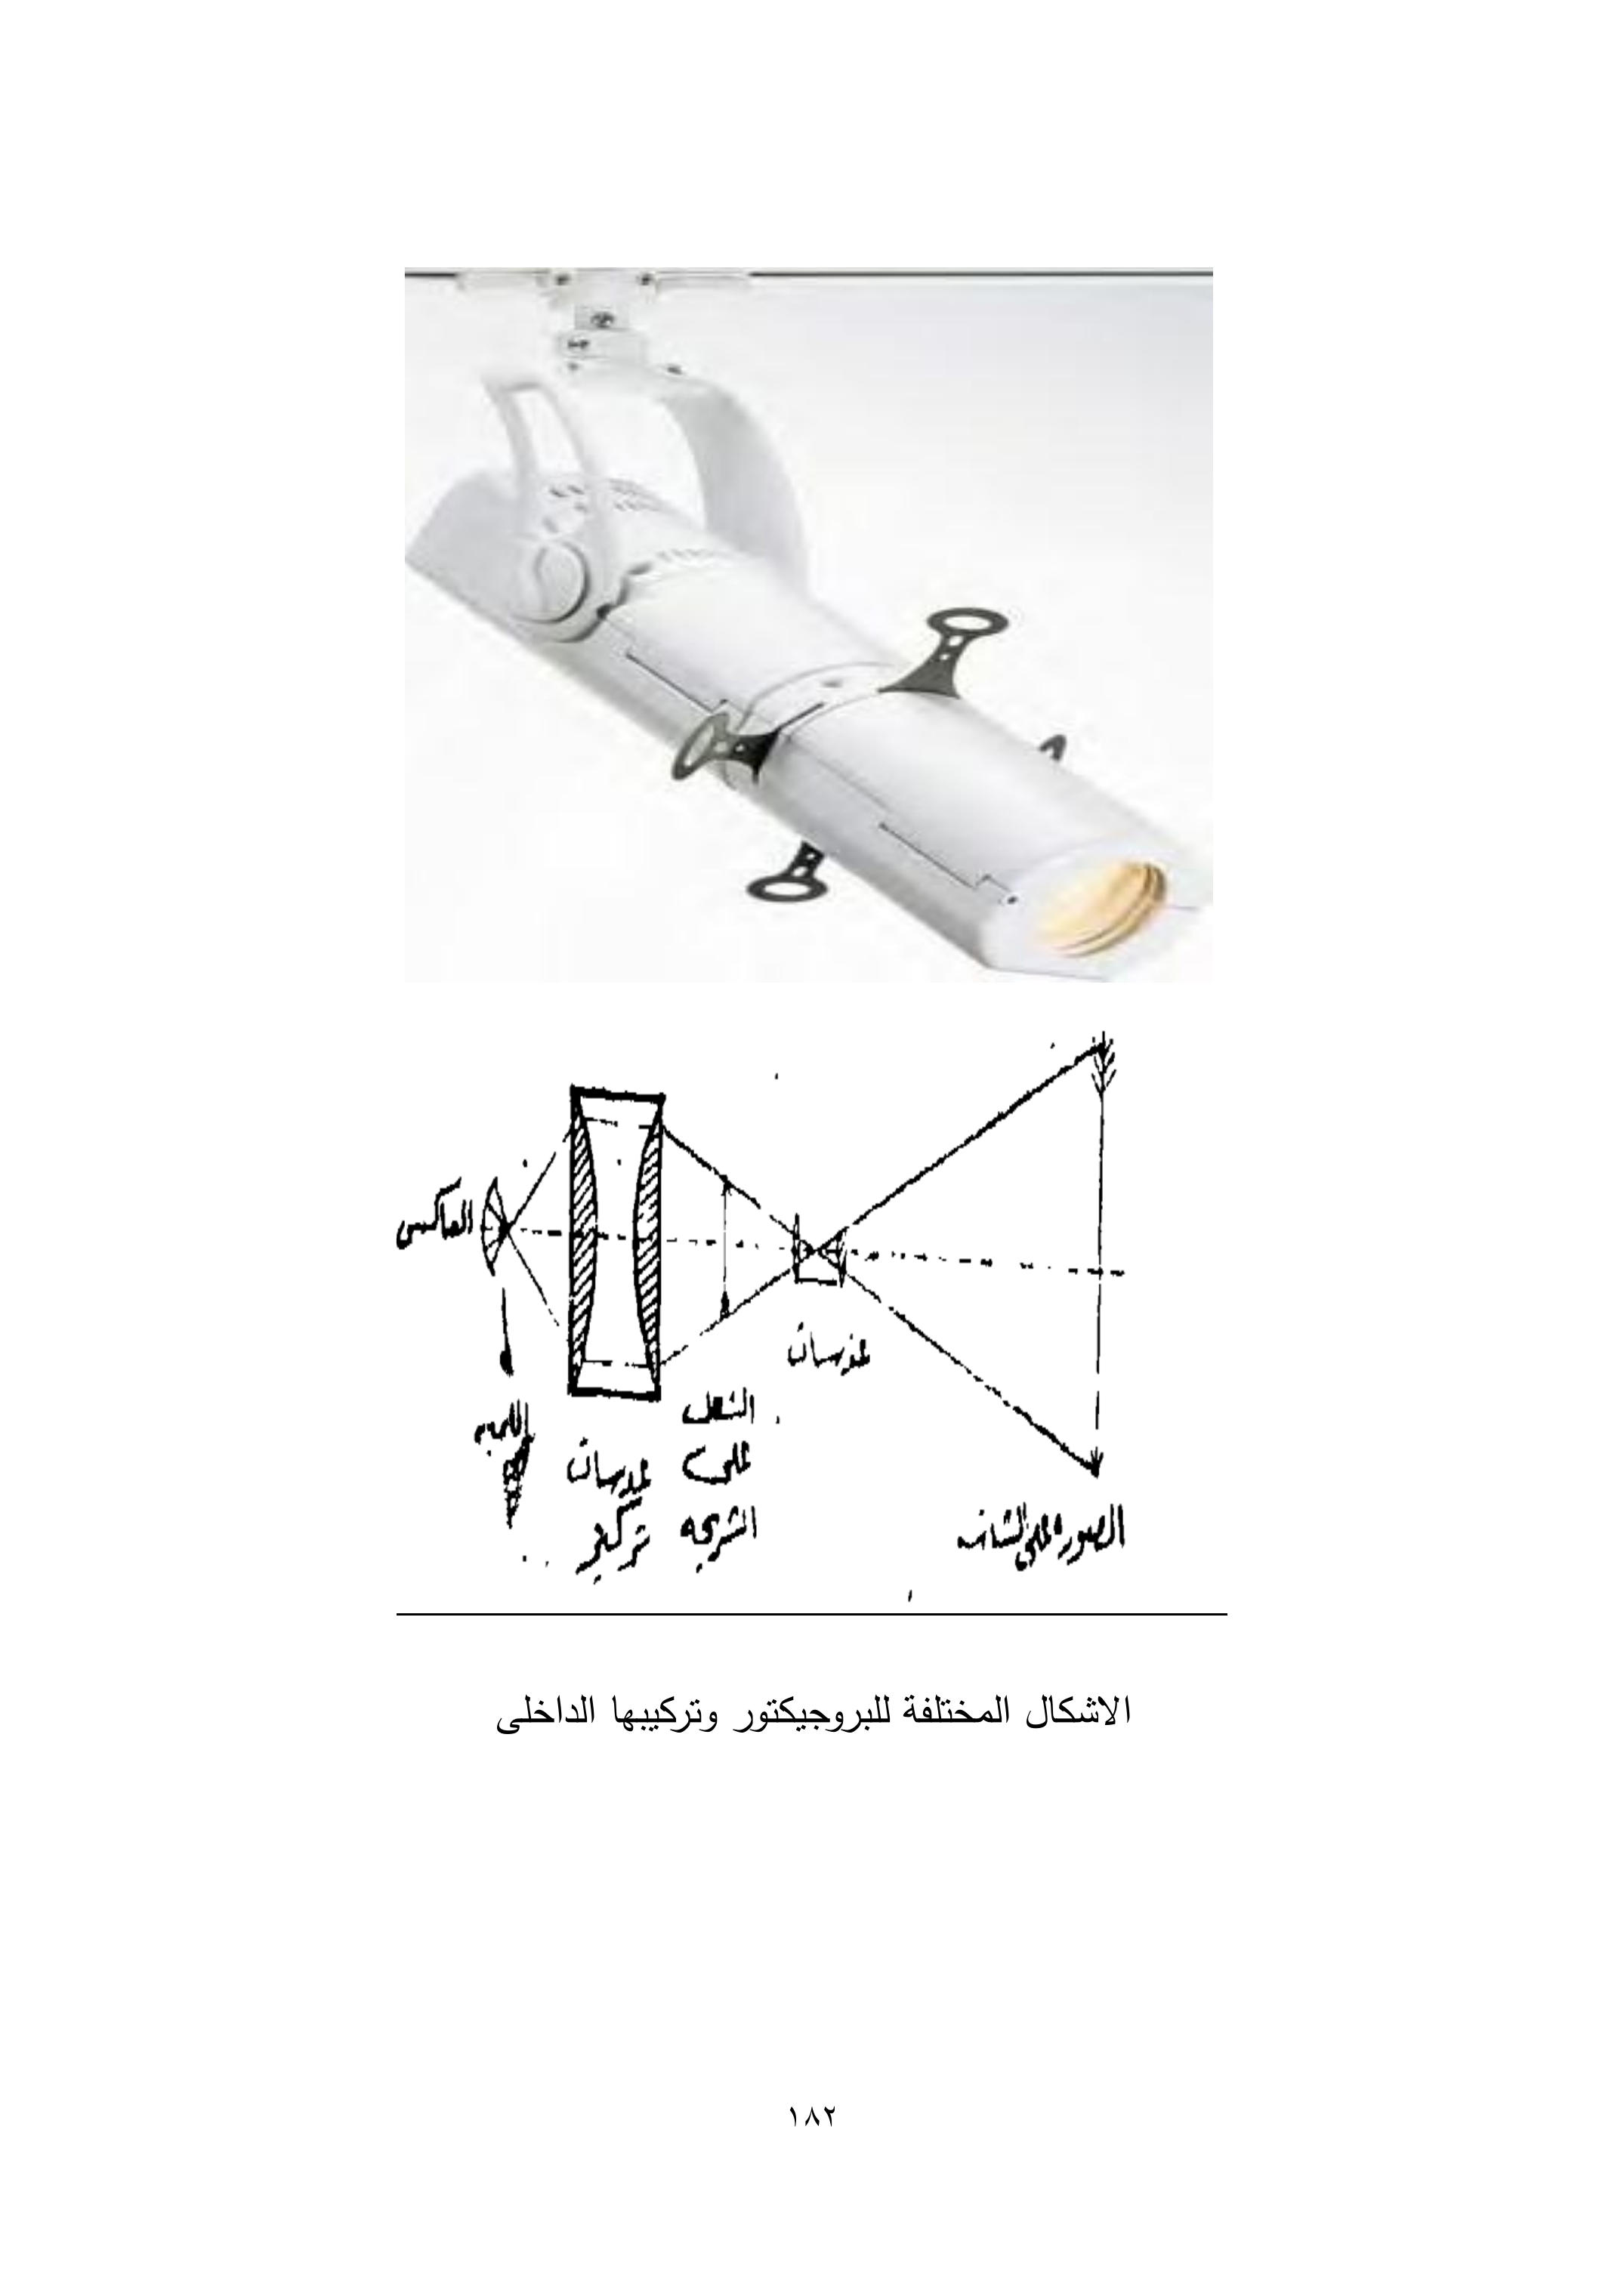 العاكس
عدسات
اللمبه
الشكل
على
الشريحه
عدسات
تركيز
الصوره على الشاشه
الاشكال المختلفة للبروجيكتور وتركيبها الداخلى
١٨٢